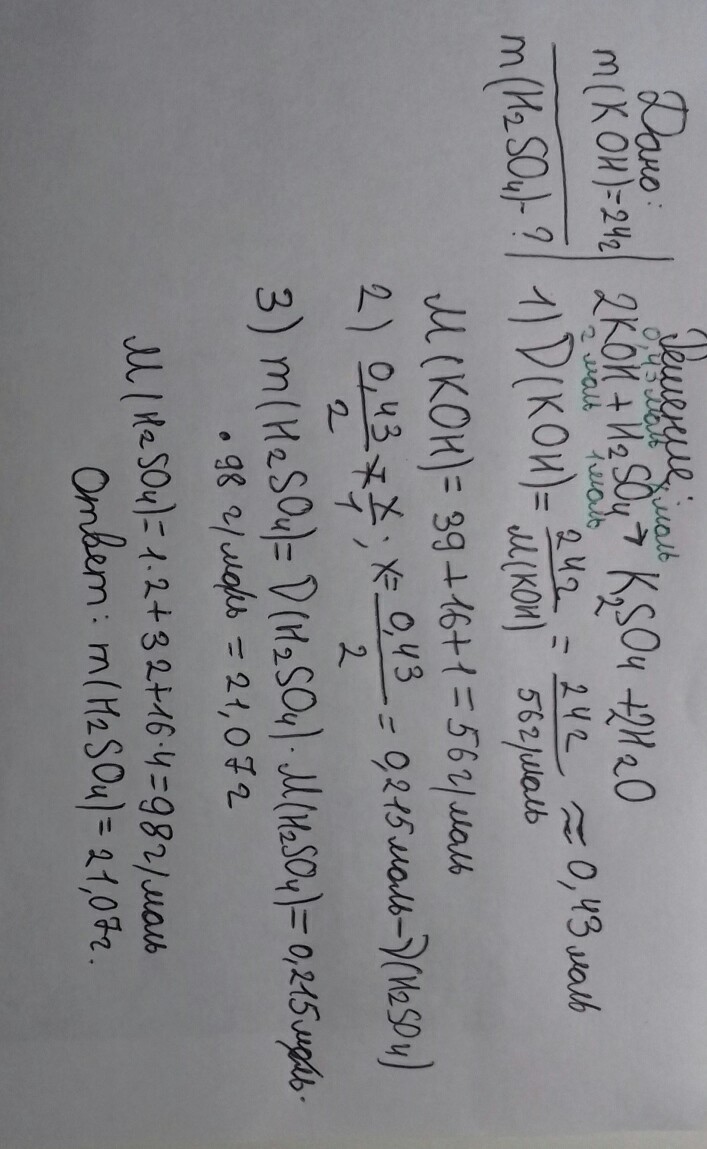 Дано:
m(KOH)=24г
m(H₂SO₄)-?
Решение:
0,43моль x моль
2KOH + H₂SO₄ → K₂SO₄ + 2H₂O
2 моль 1 моль
1) ν(KOH) = 24г / M(KOH) = 24г / 56г/моль ≈ 0,43 моль
M(KOH) = 39 + 16 + 1 = 56 г/моль
2) 0,43 / 2 = x / 1 ; x = 0,43 / 2 = 0,215 моль – ν(H₂SO₄)
3) m(H₂SO₄) = ν(H₂SO₄) · M(H₂SO₄) = 0,215 моль ·
· 98 г/моль = 21,07 г
M(H₂SO₄) = 1·2 + 32 + 16·4 = 98 г/моль
Ответ: m(H₂SO₄) = 21,07г.